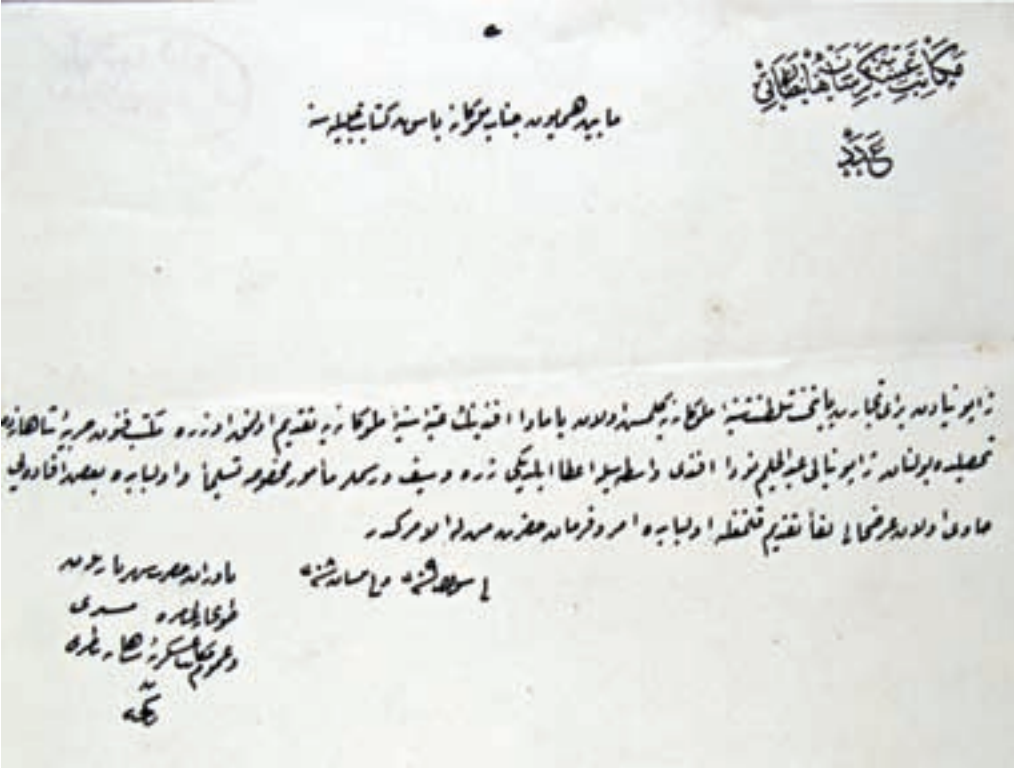 مكاتب عسكريۀ شاهانه نظارتى
عدد
مابين همايون جناب ملوكانه باش كتابت جليله‌سنه
ژاپونيادن براى تجارت پايتخت سلطنت سنيۀ ملوكانه‌يه كلمش اولان ياماда افندينك عتبۀ سنيۀ ملوكانه‌يه تقديم اولنمق اوزره مكتب فنون حربيۀ شاهانه‌ده
تحصيلده بولنان ژاپونيالى عبدالحليم نودا افندى واسطه‌سيله اعطا ايلديكى زره و سيف و رسملر مأمور مخصوصه تسليماً و اولبابده بعض افاداتى
حاوى اولان عرضحالى لفاً تقديم قلنمغله اولبابده امر و فرمان حضرت من له الامركدر
فى سنه و فى سنه
ياوران حضرت شهرياريدن
طوپخانۀ عامره مشيرى
و عموم مكاتب عسكريۀ شاهانه ناظرى
زكى